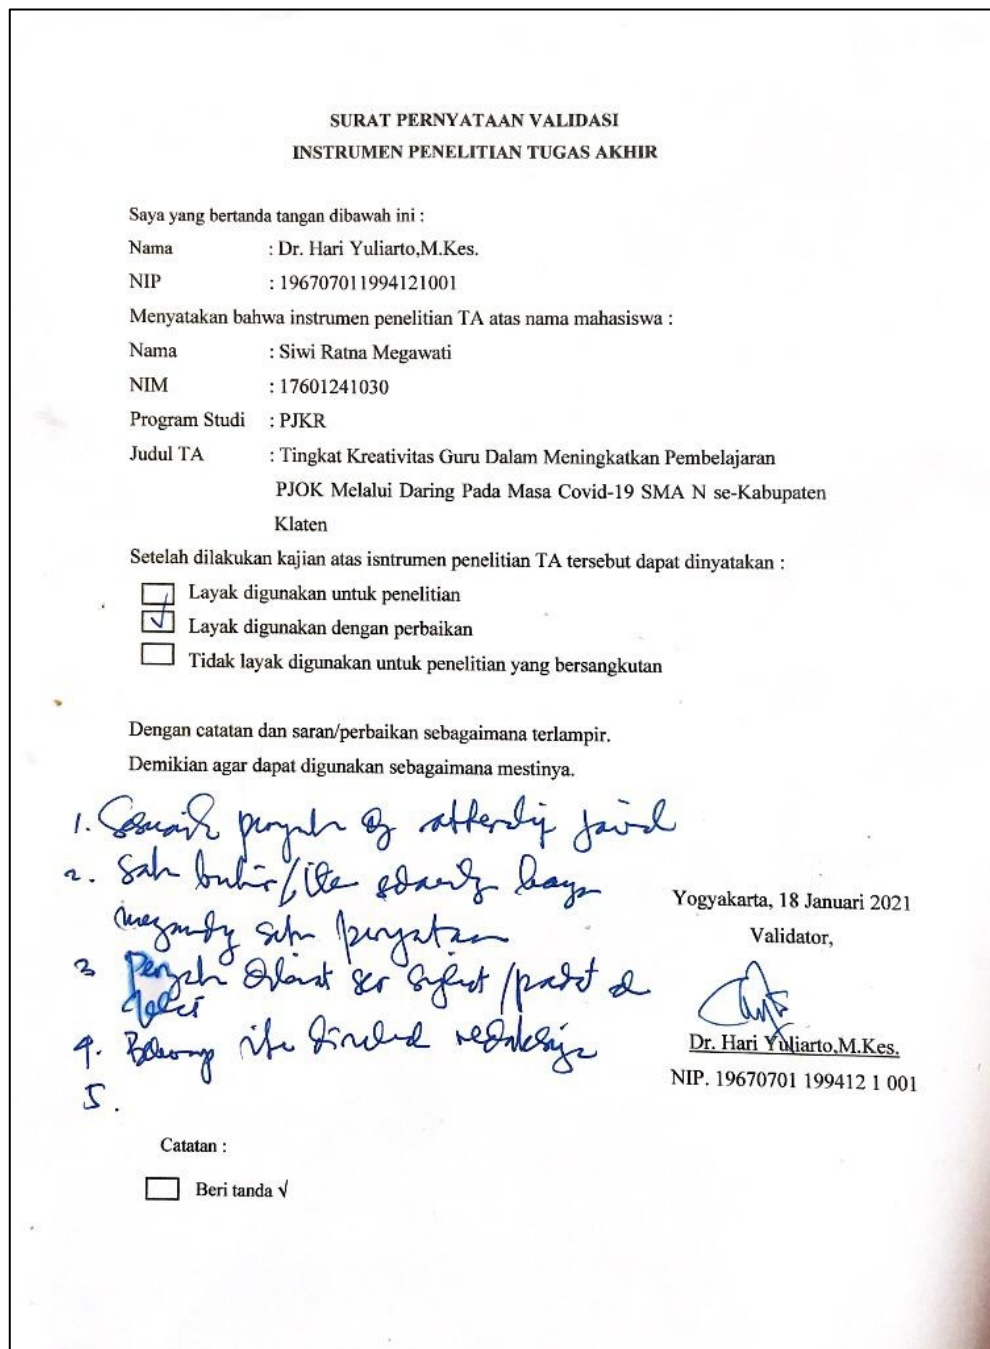 SURAT PERNYATAAN VALIDASI
INSTRUMEN PENELITIAN TUGAS AKHIR
Saya yang bertanda tangan dibawah ini :
Nama : Dr. Hari Yuliarto,M.Kes.
NIP : 196707011994121001
Menyatakan bahwa instrumen penelitian TA atas nama mahasiswa :
Nama : Siwi Ratna Megawati
NIM : 17601241030
Program Studi : PJKR
Judul TA : Tingkat Kreativitas Guru Dalam Meningkatkan Pembelajaran
PJOK Melalui Daring Pada Masa Covid-19 SMA N se-Kabupaten
Klaten
Setelah dilakukan kajian atas isntrumen penelitian TA tersebut dapat dinyatakan :
Layak digunakan untuk penelitian
√ Layak digunakan dengan perbaikan
Tidak layak digunakan untuk penelitian yang bersangkutan
Dengan catatan dan saran/perbaikan sebagaimana terlampir.
Demikian agar dapat digunakan sebagaimana mestinya.
1.
2. butir/
3
4.
5.
Yogyakarta, 18 Januari 2021
Validator,
Dr. Hari Yuliarto,M.Kes.
NIP. 19670701 199412 1 001
Catatan :
Beri tanda √